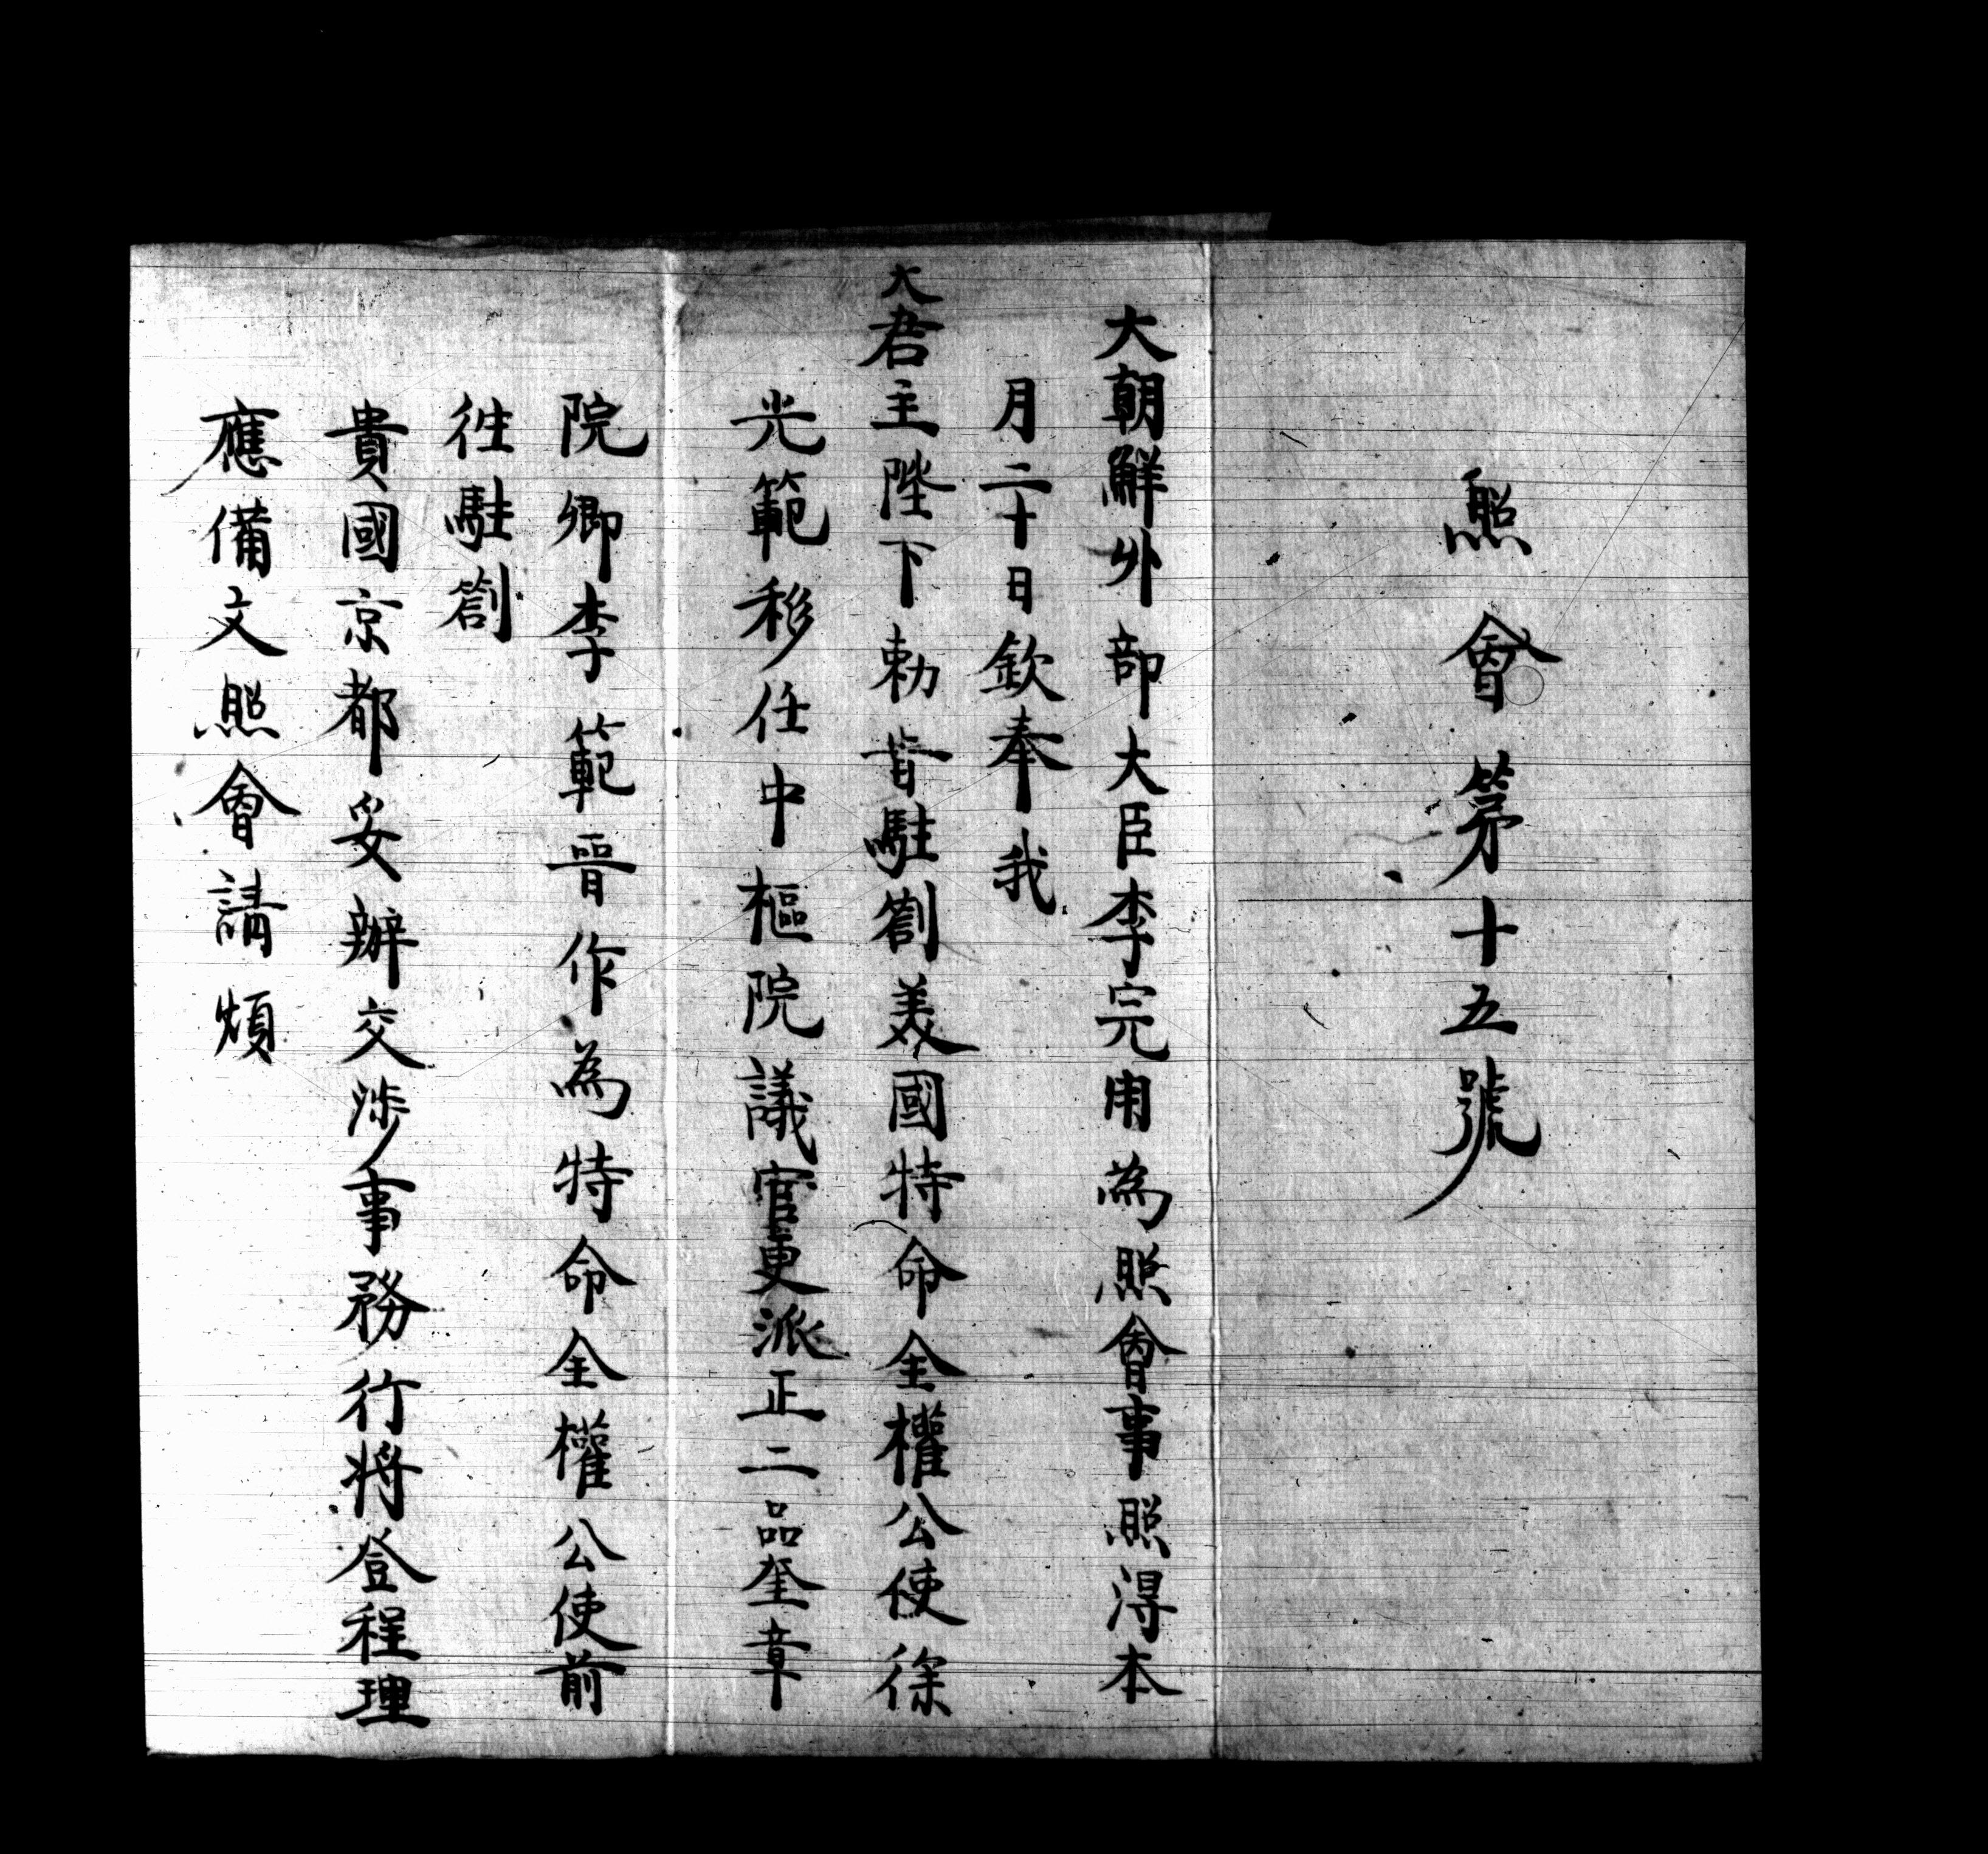 照會第十五號
大朝鮮外部大臣李完用為照會事照得本
月二十日欽奉我
大君主陛下勅旨駐劄美國特命全權公使徐
光範移任中樞院議官更派正二品奎章
院卿李範晉作為特命全權公使前
徃駐劄
貴國京都妥辦交涉事務行將登程理
應備文照會請煩